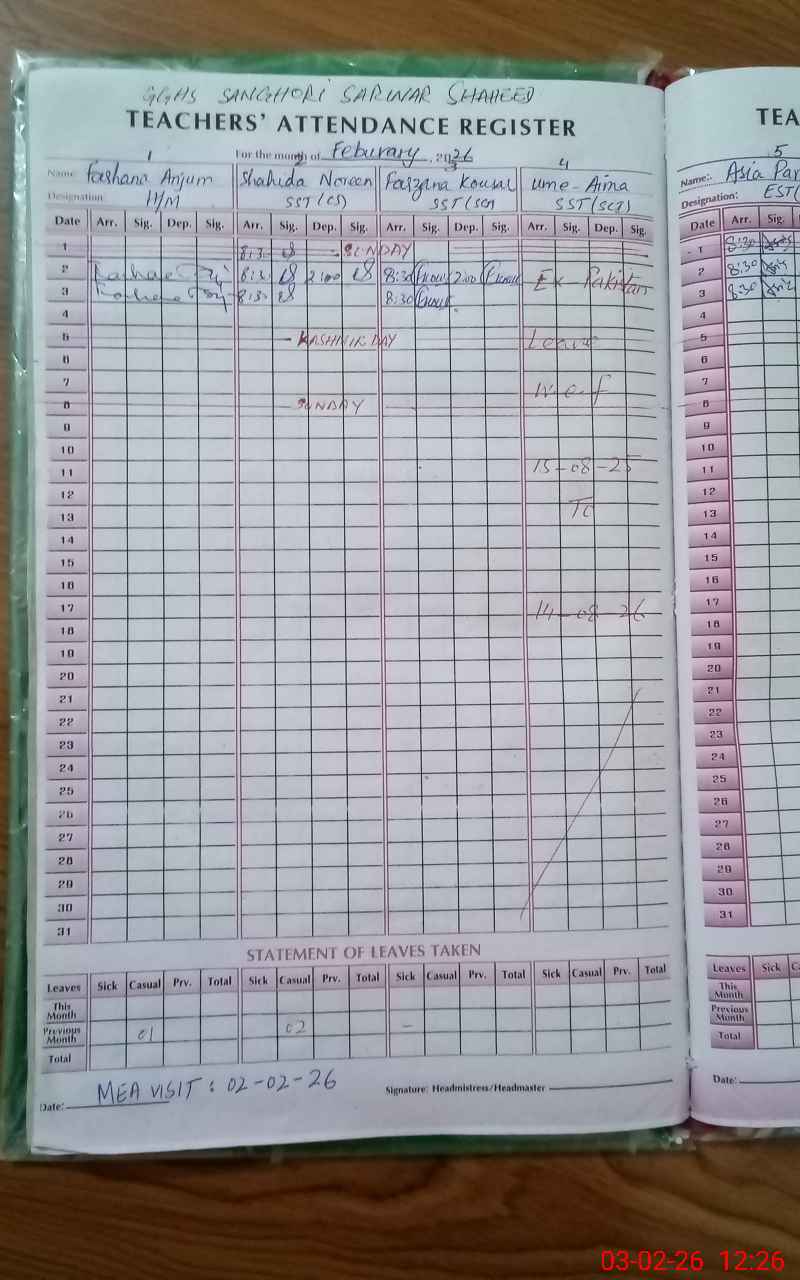 GGHS SANGHORI SARWAR SHAHEED
TEACHERS' ATTENDANCE REGISTER
For the month of Feburary, 2026
1 2 3 4
Name: Farhana Anjum Shahida Noreen Farzana Kousar Ume-Aima
Designation: H/M SST(CS) SST(SCI) SST(SCI)
Date Arr. Sig. Dep. Sig. Arr. Sig. Dep. Sig. Arr. Sig. Dep. Sig. Arr. Sig. Dep. Sig.
1 8:30 SUNDAY
2 8:30 2:00 8:30 2:00 Ex-Pakistan
3 8:30 8:30
4
5 - KASHMIR DAY Leave
6
7 w.e.f
8 SUNDAY
9
10
11 15-08-25
12
13 To
14
15
16
17 14-08-26
18
19
20
21
22
23
24
25
26
27
28
29
30
31
STATEMENT OF LEAVES TAKEN
Leaves Sick Casual Prv. Total Sick Casual Prv. Total Sick Casual Prv. Total Sick Casual Prv. Total
This Month
Previous Month 01 02 -
Total
MEA VISIT: 02-02-26
Date: Signature: Headmistress/Headmaster
TEA
5
Name: Asia Par
Designation: EST(
Date Arr. Sig.
1 8:30
2 8:30
3 8:30
4
5
6
7
8
9
10
11
12
13
14
15
16
17
18
19
20
21
22
23
24
25
26
27
28
29
30
31
Leaves Sick Ca
This Month
Previous Month
Total
Date:
03-02-26 12:26